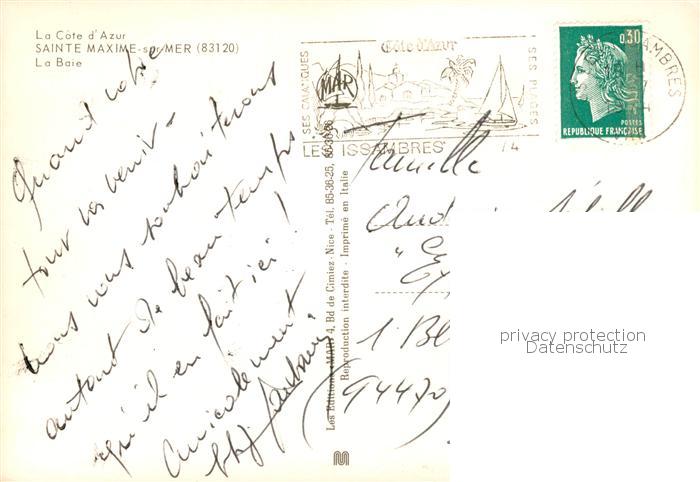 La Côte d'Azur
SAINTE MAXIME-sur-MER (83120)
La Baie
Quand votre
tour va venir -
nous vous souhaiterons
autant de beau temps
qu'il en fait ici !
Amicalement
SES CALANQUES
Côte d'Azur
SES PLAGES
MAR
LES ISSAMBRES
0,30
POSTES
REPUBLIQUE FRANÇAISE
AMBRES
Les Editions «MAR» 4, Bd de Cimiez - Nice - Tél. 85-36-25, 85-36-66
Reproduction interdite - Imprimé en Italie
Famille
1 Bl
(94470)
privacy protection
Datenschutz